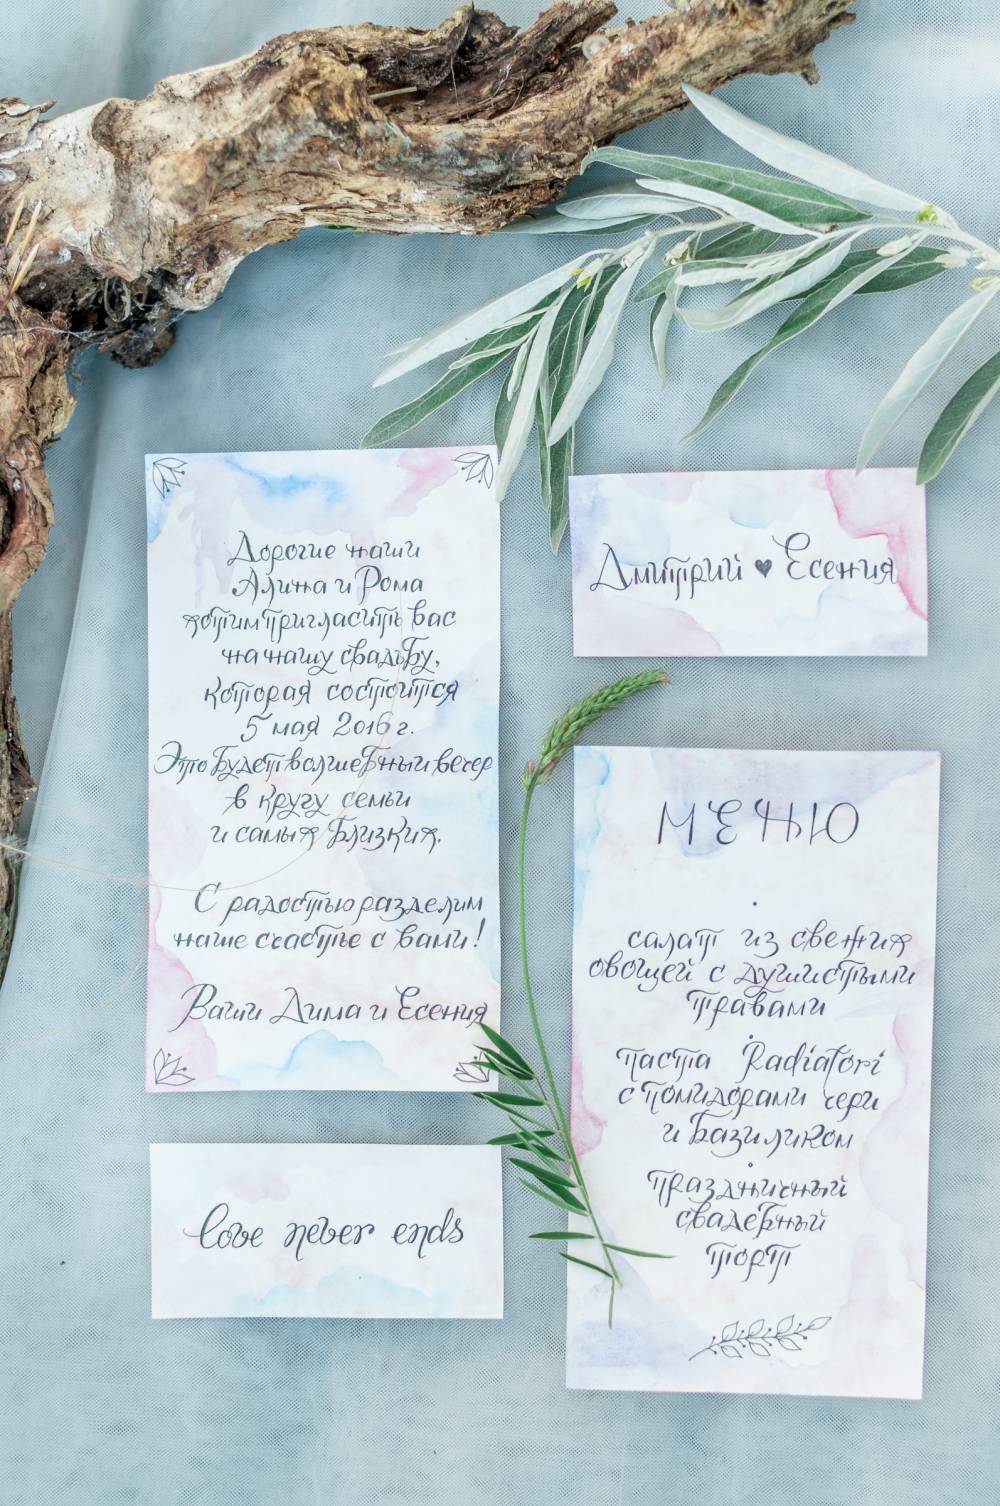 Дорогие наши
Алина и Рома
хотим пригласить вас
на нашу свадьбу,
которая состоится
5 мая 2016 г.
Это будет волшебный вечер
в кругу семьи
и самых близких.
С радостью разделим
наше счастье с вами!
Ваши Дима и Есения
love never ends
Дмитрий ♥ Есения
МЕНЮ
салат из свежих
овощей с душистыми
травами
паста Radiatori
с помидорами чери
и базиликом
праздничный
свадебный
торт